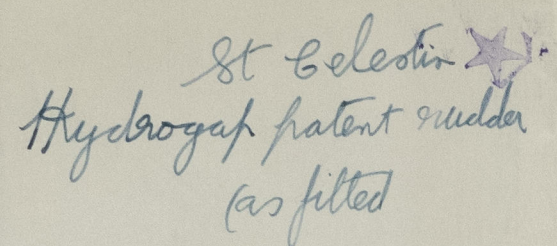 St Celestin
Hydrogap patent rudder
(as fitted